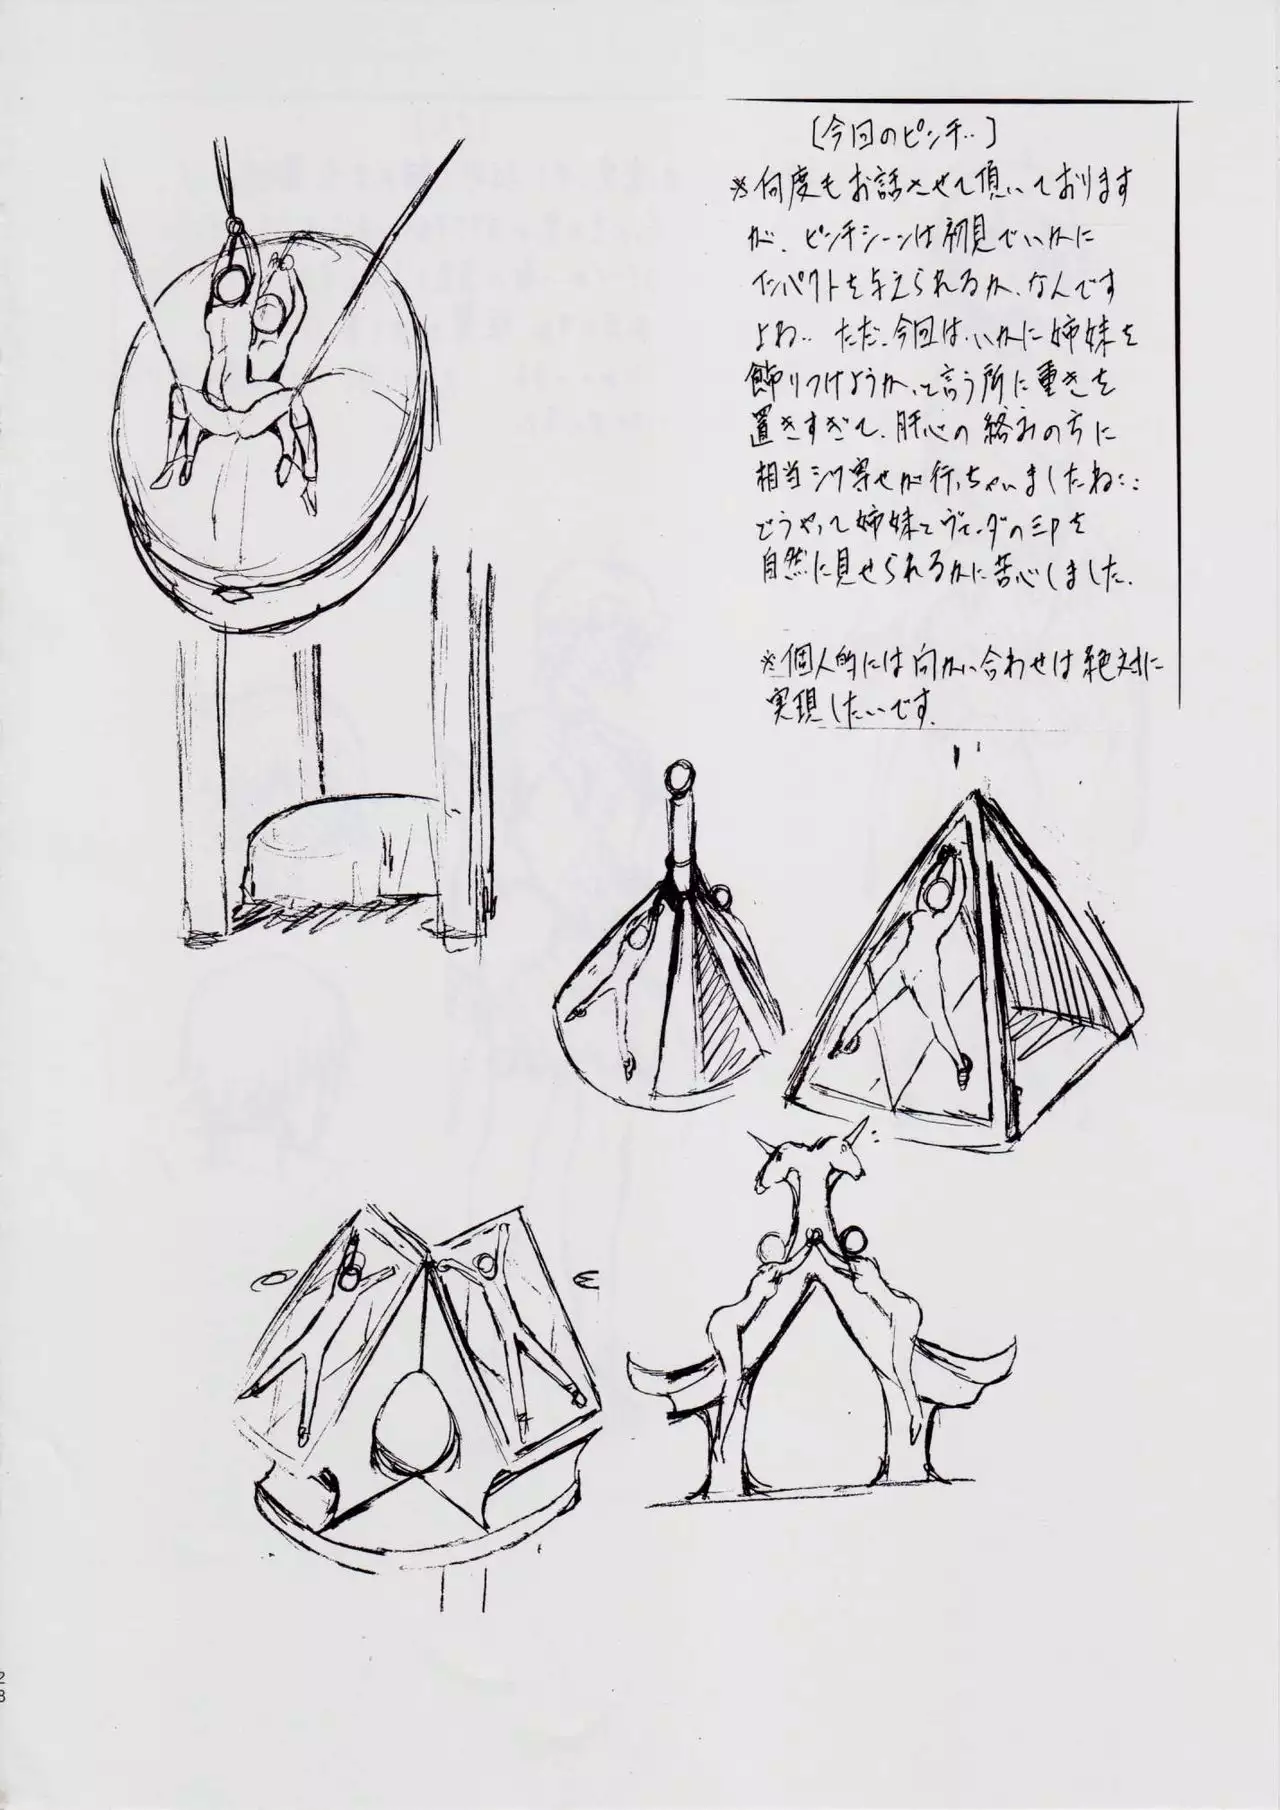 [今回のピンチ..]
※何度もお話させて頂いております
が、ピンチシーンは初見でいかに
インパクトを与えられるか、なんです
よね.. ただ、今回は、いかに姉妹を
飾りつけようか、って言う所に重きを
置きすぎて、肝心の絡みの方に
相当シワ寄せが行っちゃいましたね…
どうやって姉妹とヴェーダの印を
自然に見せられるかに苦心しました.
※個人的には向かい合わせは絶対に
実現したいです.
28